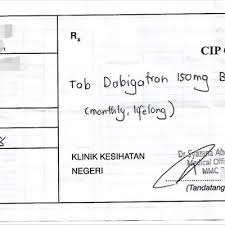 Rx
CIP
Tab Dabigatran 150mg B
(monthly, lifelong)
8
KLINIK KESIHATAN
NEGERI
Dr Syazana Ab
Medical Offi
MMC
(Tandatang